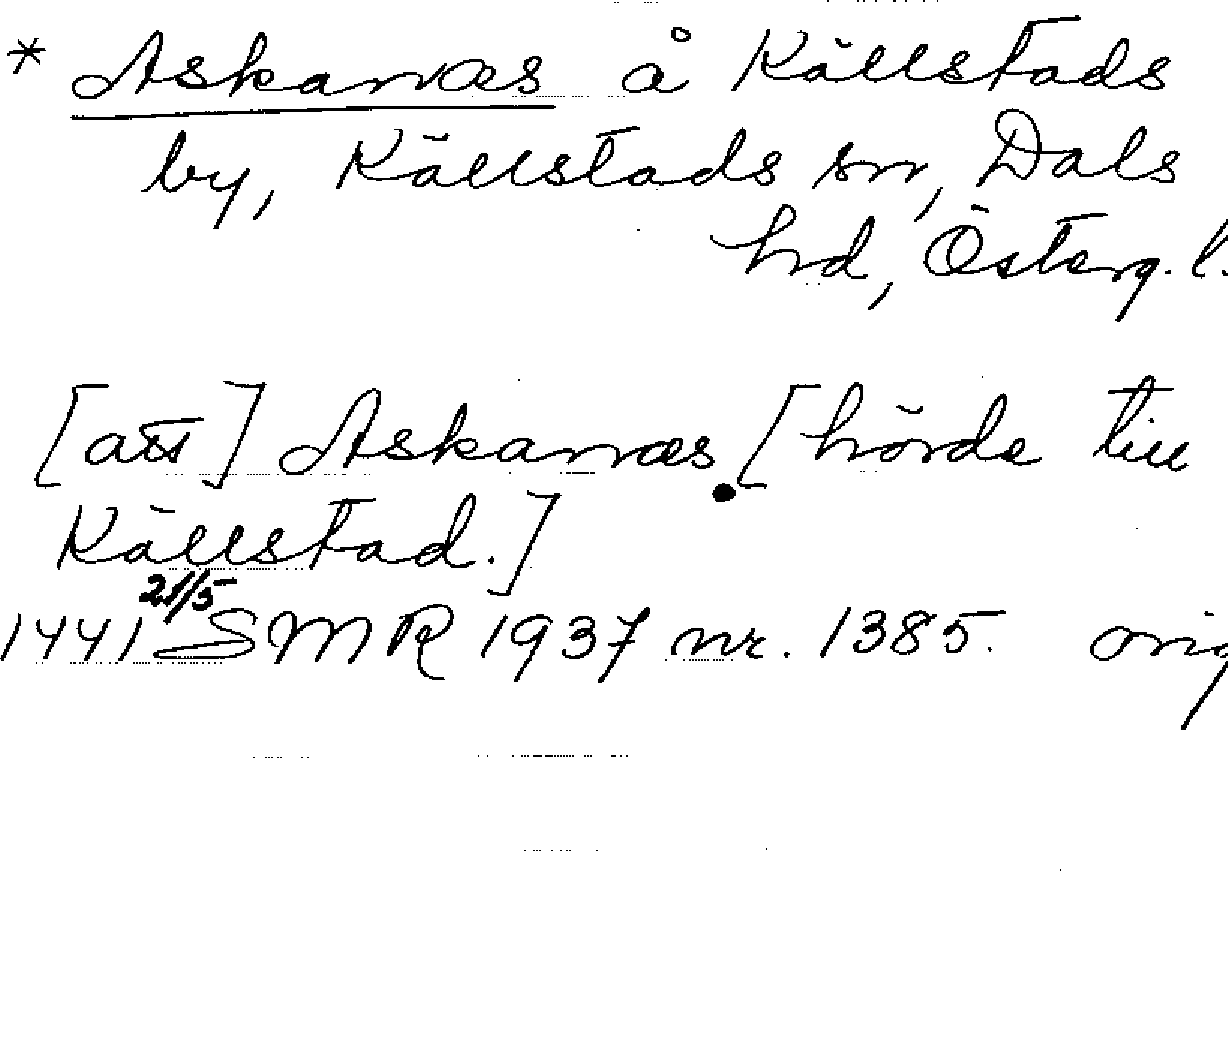 * Askanæs å Källstads
by, Källstads sn, Dals
hd, Österg. l.
[att] Askanæs [hörde till
Källstad.]
1441 21/5 SMR 1937 nr. 1385. orig